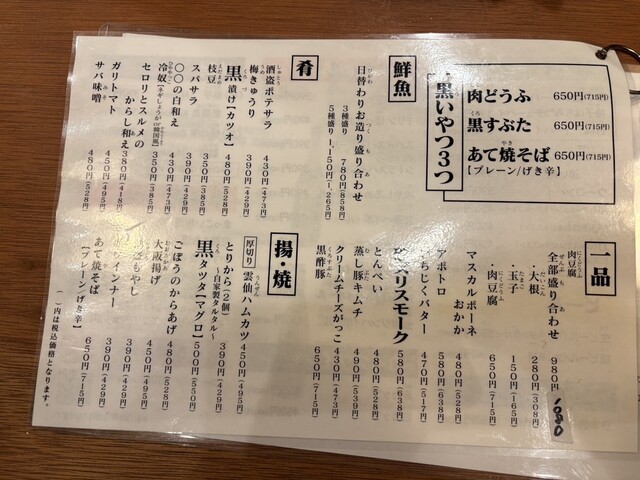 黒いやつ3つ
肉どうふ 650円(715円)
黒すぶた 650円(715円)
あて焼そば 650円(715円)
【プレーン/げき辛】
鮮魚
日替わりお造り盛り合わせ
3種盛り 780円(858円)
5種盛り 1,150円(1,265円)
肴
酒盗ポテサラ 430円(473円)
梅きゅうり 390円(429円)
黒漬け【カツオ】 480円(528円)
枝豆 350円(385円)
スパサラ 390円(429円)
〇〇の白和え 430円(473円)
冷奴【ネギしょうがor韓国風】 350円(385円)
セロリとスルメの
からし和え 380円(418円)
ガリトマト 450円(495円)
サバ味噌 480円(528円)
一品
肉豆腐
全部盛り合わせ 980円 1080
・大根 280円(308円)
・玉子 150円(165円)
・肉豆腐 650円(715円)
マスカルポーネ
おかか 480円(528円)
アボトロ 580円(638円)
ちじくバター 470円(517円)
リスモーク 580円(638円)
とんぺい 480円(528円)
蒸し豚キムチ 490円(539円)
クリームチーズがっこ 430円(473円)
黒酢豚 650円(715円)
揚・焼
厚切り 雲仙ハムカツ 450円(495円)
とりから(2個)
〜自家製タルタル〜 390円(429円)
黒タツタ【マグロ】 500円(550円)
ごぼうのからあげ 480円(528円)
大阪揚げ 450円(495円)
もやし 390円(429円)
インナー 390円(429円)
あて焼そば
【プレーン/げき辛】 650円(715円)
( )内は税込価格となります。